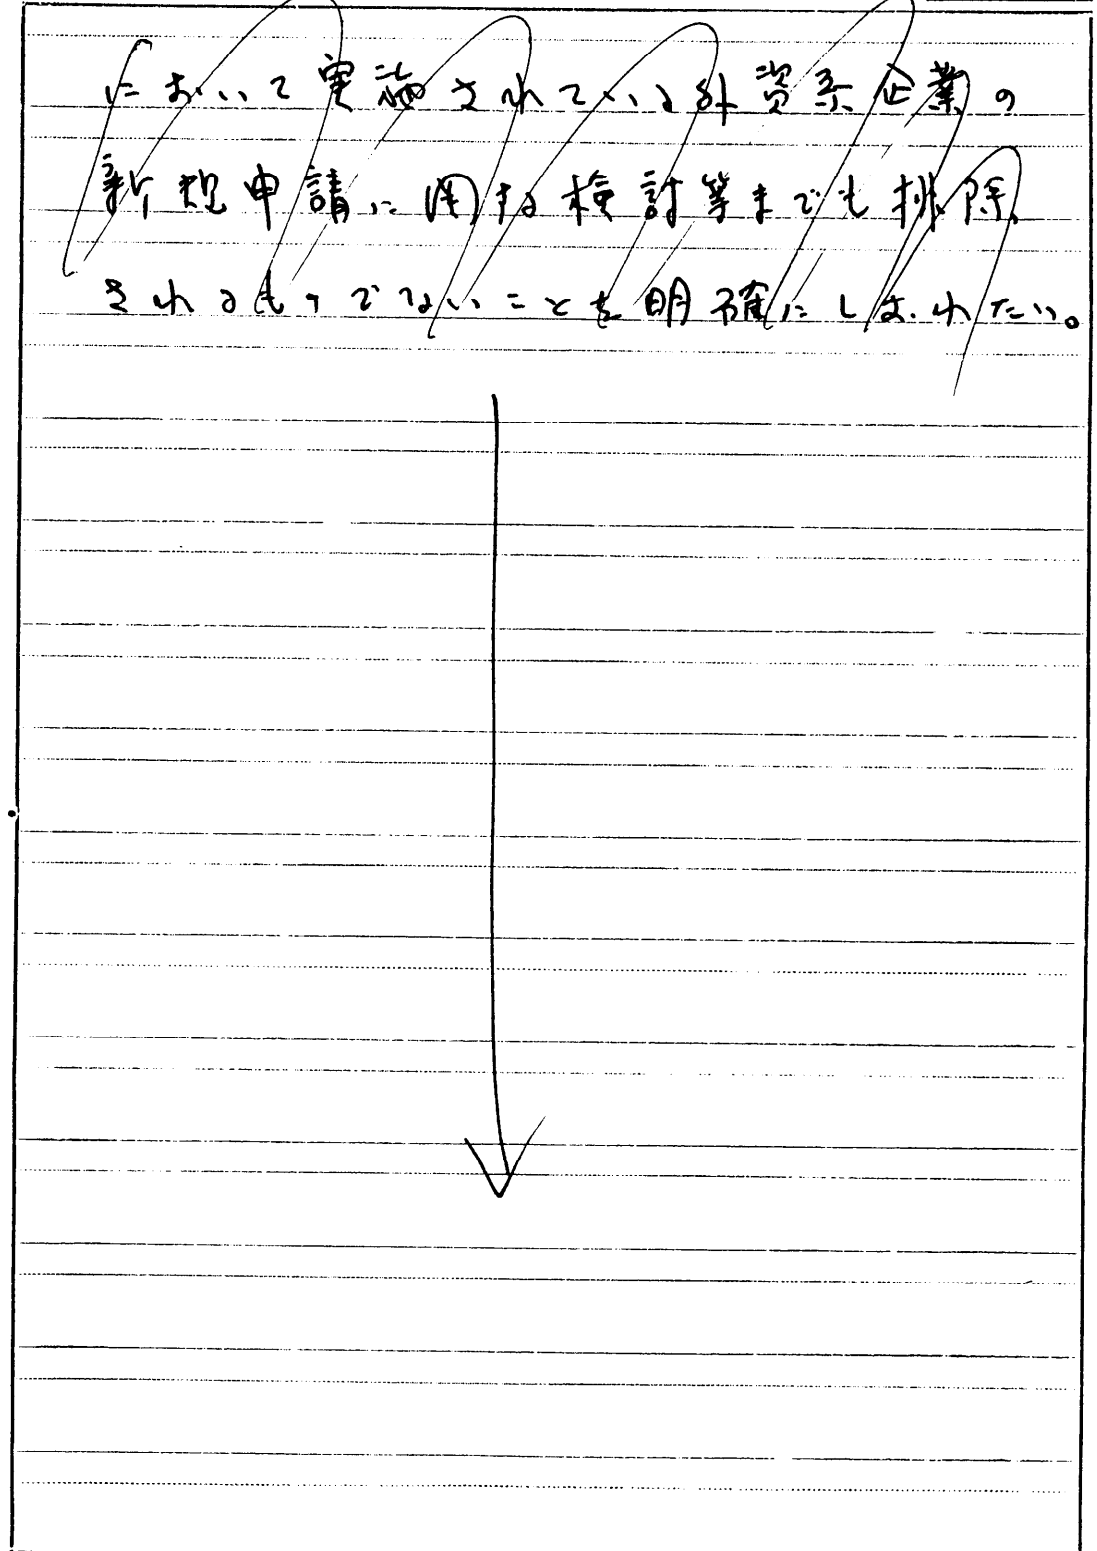 において実施されている外資系企業の
新規申請に関する検討等までも排除
されるものでないことを明確にしおかれたい。